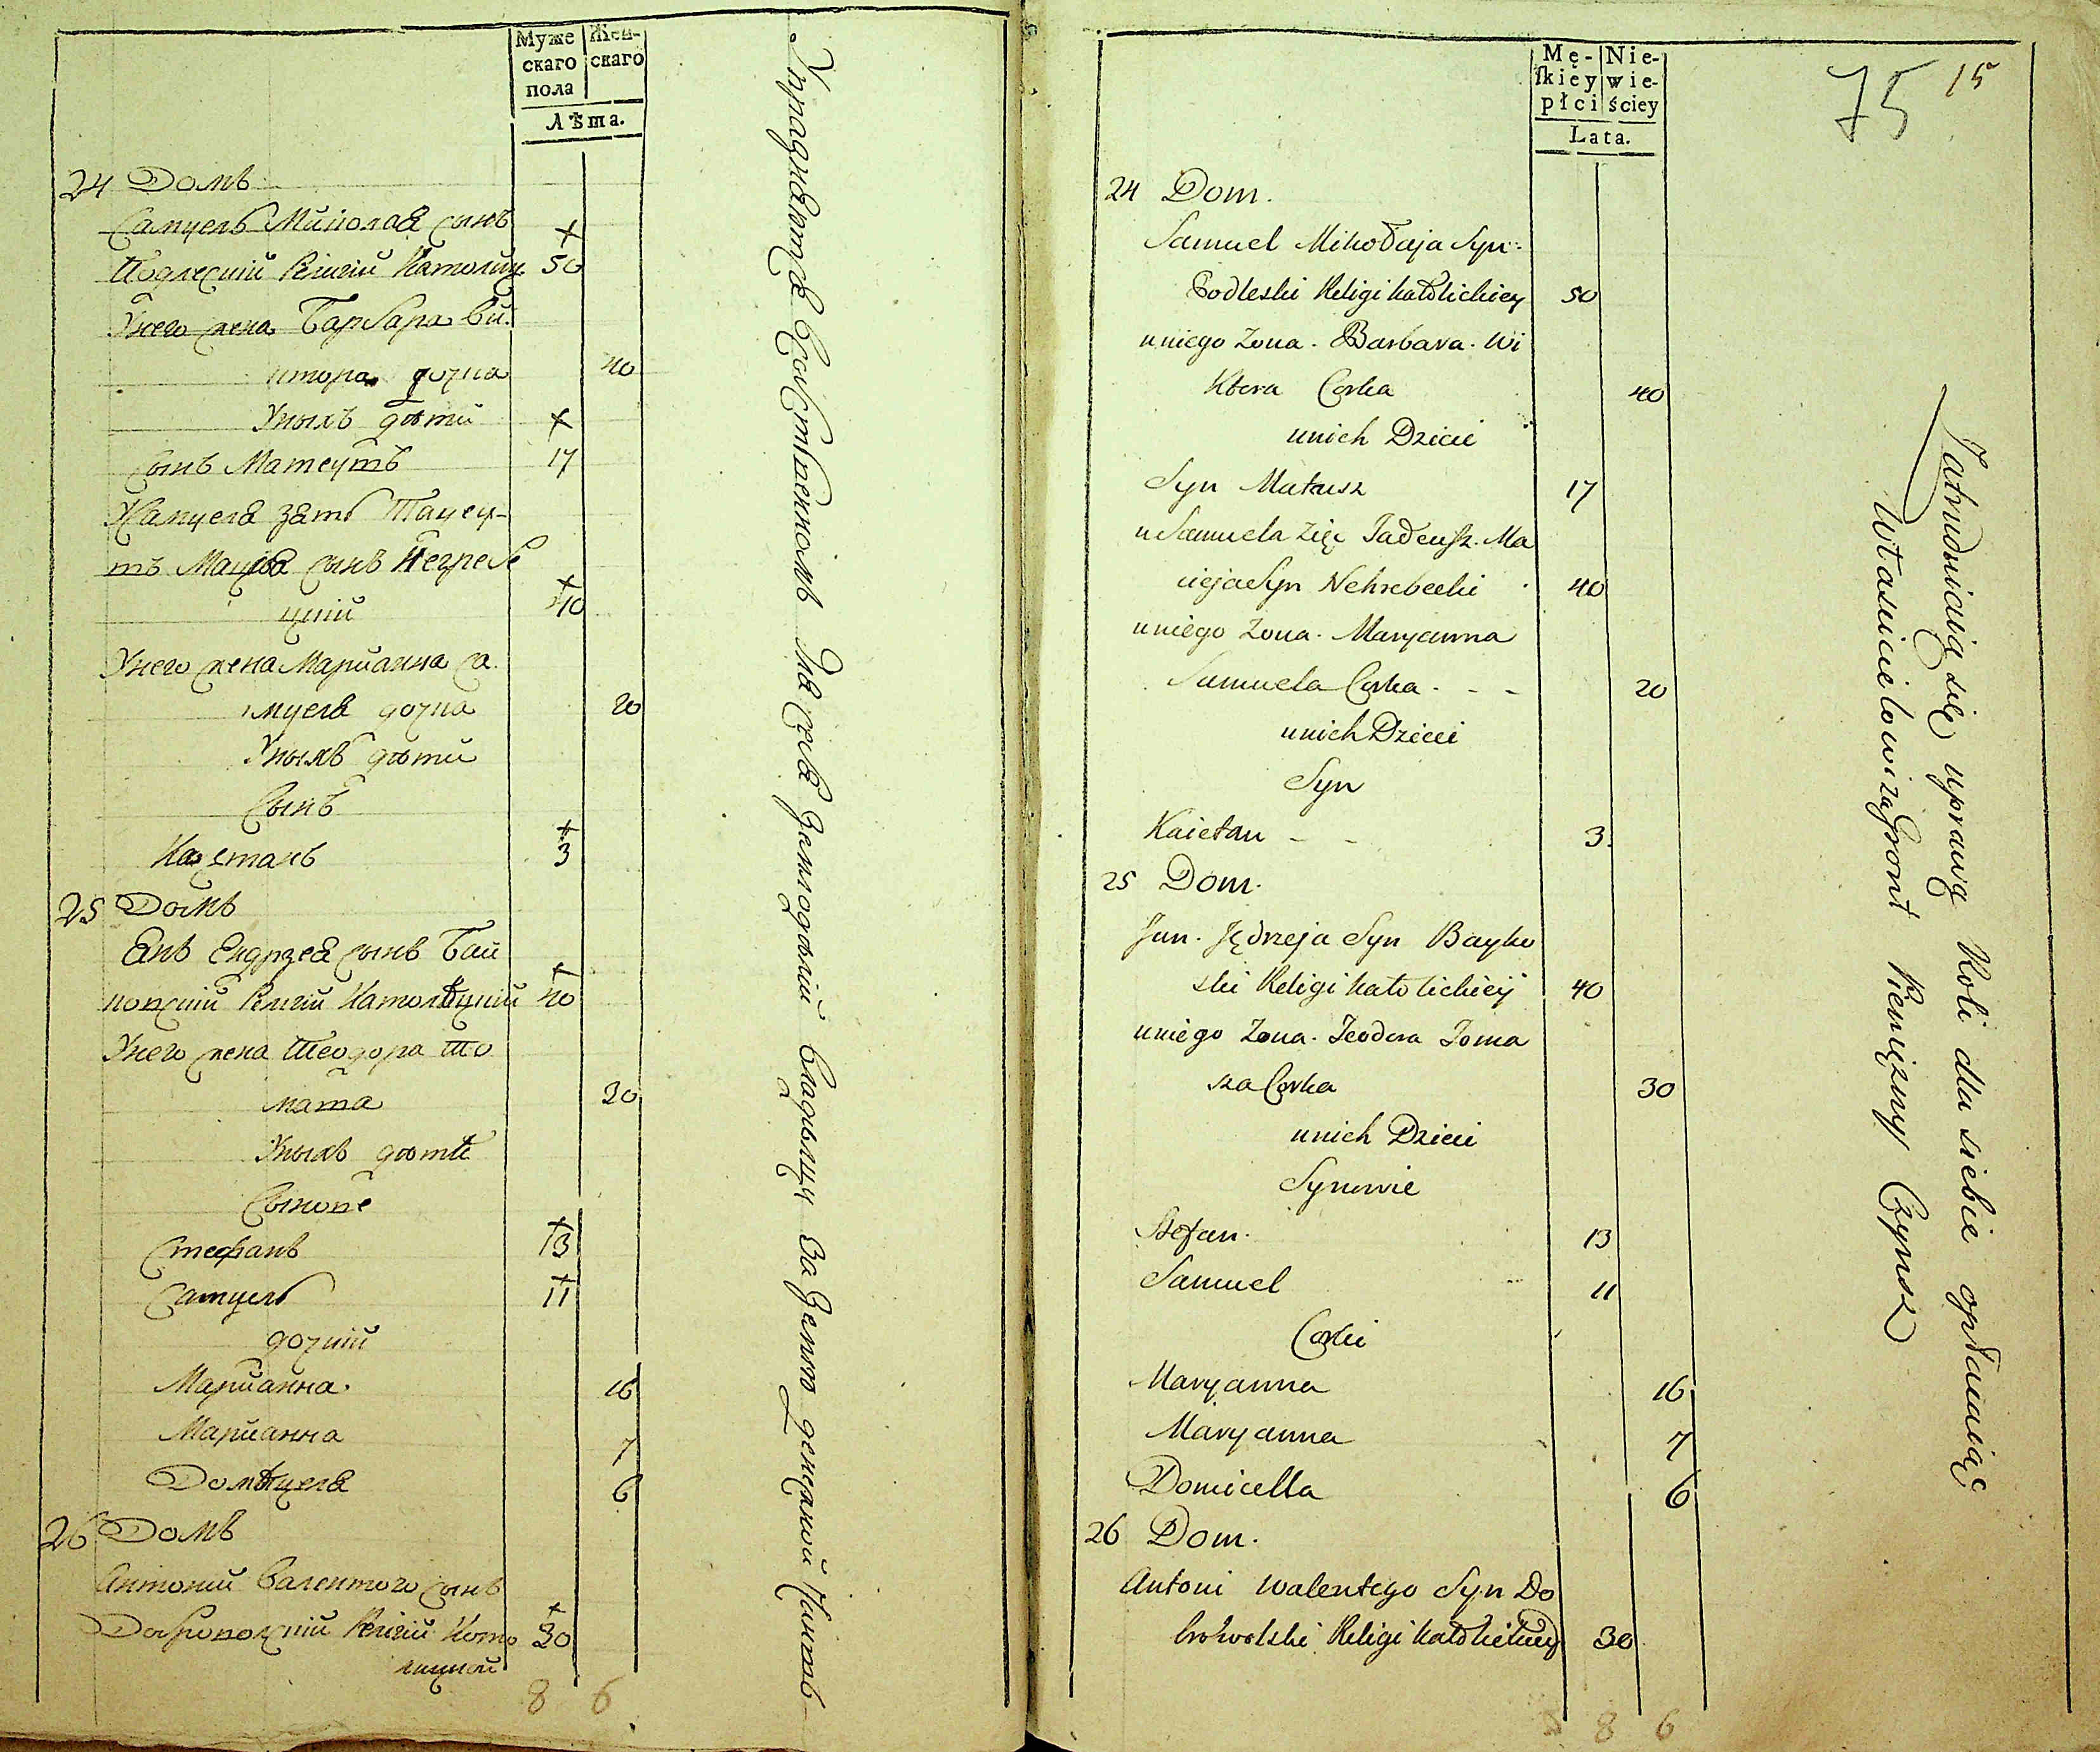 Муже
скаго
пола
Жен-
скаго
Лѣта.
24 Домъ
Самуель Миколая сынъ
Подлескій Религіи Католиц. 50
Унего жена Барбара Ви.
ктора дочка 40
Уныхъ дѣти
Сынъ Матеушъ 17
Самуеля зять Тадеу-
шъ Мацѣя сынъ Негребе
цкій 40
Унего жена Марианна Са.
муеля дочка 20
Уныхъ дѣти
Сынъ
Каэтанъ 3
25 Домъ
Янъ Ендрзея сынъ Бай
ковскій Религіи Католѣцкій 40
Унего жена Теодора То
маша 30
Уныхъ дѣти
Сынове
Стефанъ 13
Самуель 11
дочкій
Марианна. 16
Марианна 7
Домѣцеля 6
26 Домъ
Антоній Валентого сынъ
Добровольскій Религіи Като 30
лицкой
8 6
Упражняются Собственномъ Для себя Земледѣлій владѣльцу за Землю денежной Чиншъ
75 15
Mę-
ſkiey
płci
Nie-
wie-
ściey
Lata.
24 Dom.
Samuel Mikołaja Syn
Podleski Religi katolickiey 50
uniego Zona. Barbara. Wi
ktora Corka 40
unich Dzieci
Syn Mateusz 17
u Samuela Zięc Tadeusz. Ma
cieja Syn Nehrebecki 40
uniego Zona. Maryanna
Samuela Corka. - - 20
unich Dzieci
Syn
Kaietan - - 3.
25 Dom.
Jan. Jędrzeja Syn Bayko
ski Religi katolickiey 40
uniego Zona. Teodora Toma
sza Corka 30
unich Dzieci
Synowie
Stefan. 13
Samuel 11
Corki
Maryanna 16
Maryanna 7
Domicella 6
26 Dom.
Antoni Walentego Syn Do
browolski Religi katolickiey 30
8 6
Zatrudniaią się uprawą Roli dla siebie opłacaiąc
Własicielowi za Gront Pieniężny Czynsz